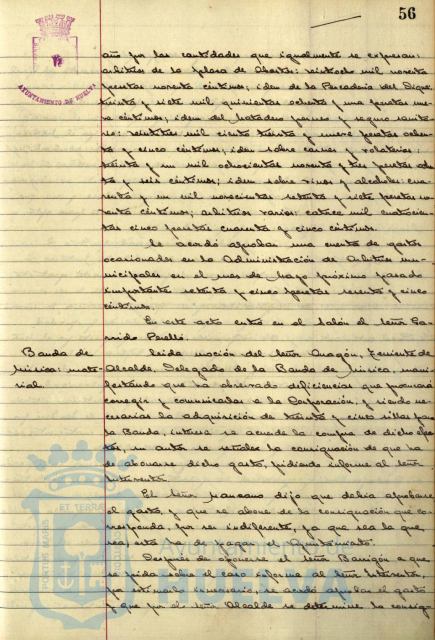 56
AYUNTAMIENTO DE HUELVA
año por las cantidades que igualmente se expresan:
arbitrios de la plaza de Abastos: veintiocho mil noventa
pesetas noventa céntimos; idem de la Pescadería del Dique
treinta y siete mil quinientas ochenta y una pesetas nueve
céntimos; idem del matadero y seguro sanitario
veintitres mil ciento treinta y nueve pesetas ochenta
y cinco céntimos; idem sobre carnes y volatería:
treinta y un mil ochocientas noventa y tres pesetas
y seis céntimos; idem sobre vinos y alcoholes: cuarenta
y un mil novecientas setenta y siete pesetas noventa
céntimos; arbitrios varios: catorce mil cuatrocientas
cinco pesetas cuarenta y cinco céntimos.
Se acordó aprobar una cuenta de gastos
ocasionados en la Administración de Arbitrios municipales
en el mes de Mayo próximo pasado
importante setenta y cinco pesetas sesenta y cinco
céntimos.
En este acto entró en el Salón el Señor Garrido
Perelló.
Banda de
Música: material.
Leida moción del Señor Aragón, Teniente de
Alcalde, Delegado de la Banda de Música, manifestando
que ha observado deficiencias que procurará
corregir y comunicarlas a la Corporación, y siendo necesarias
la adquisición de treinta y cinco sillas para
la Banda, interesa se acuerde la compra de dicho efectos,
en antes se señale la consignación de que ha
de abonarse dicho gasto, pidiendo informe al Señor
Interventor.
El Señor Manzano dijo que debía aprobarse
el gasto, y que se abone de la consignación que corresponda,
por ser indiferente, ya que sea la que
sea, este ha de pagar el Ayuntamiento.
Después de oponerse el Señor Barrigón a que
se pida sobre el caso informe al Señor Interventor,
por estimarlo innecesario, se acordó aprobar el gasto
y que por el Señor Alcalde se determine la consig
PORTUS MARIS ET TERRAE
Ayuntamiento de
HUELVA